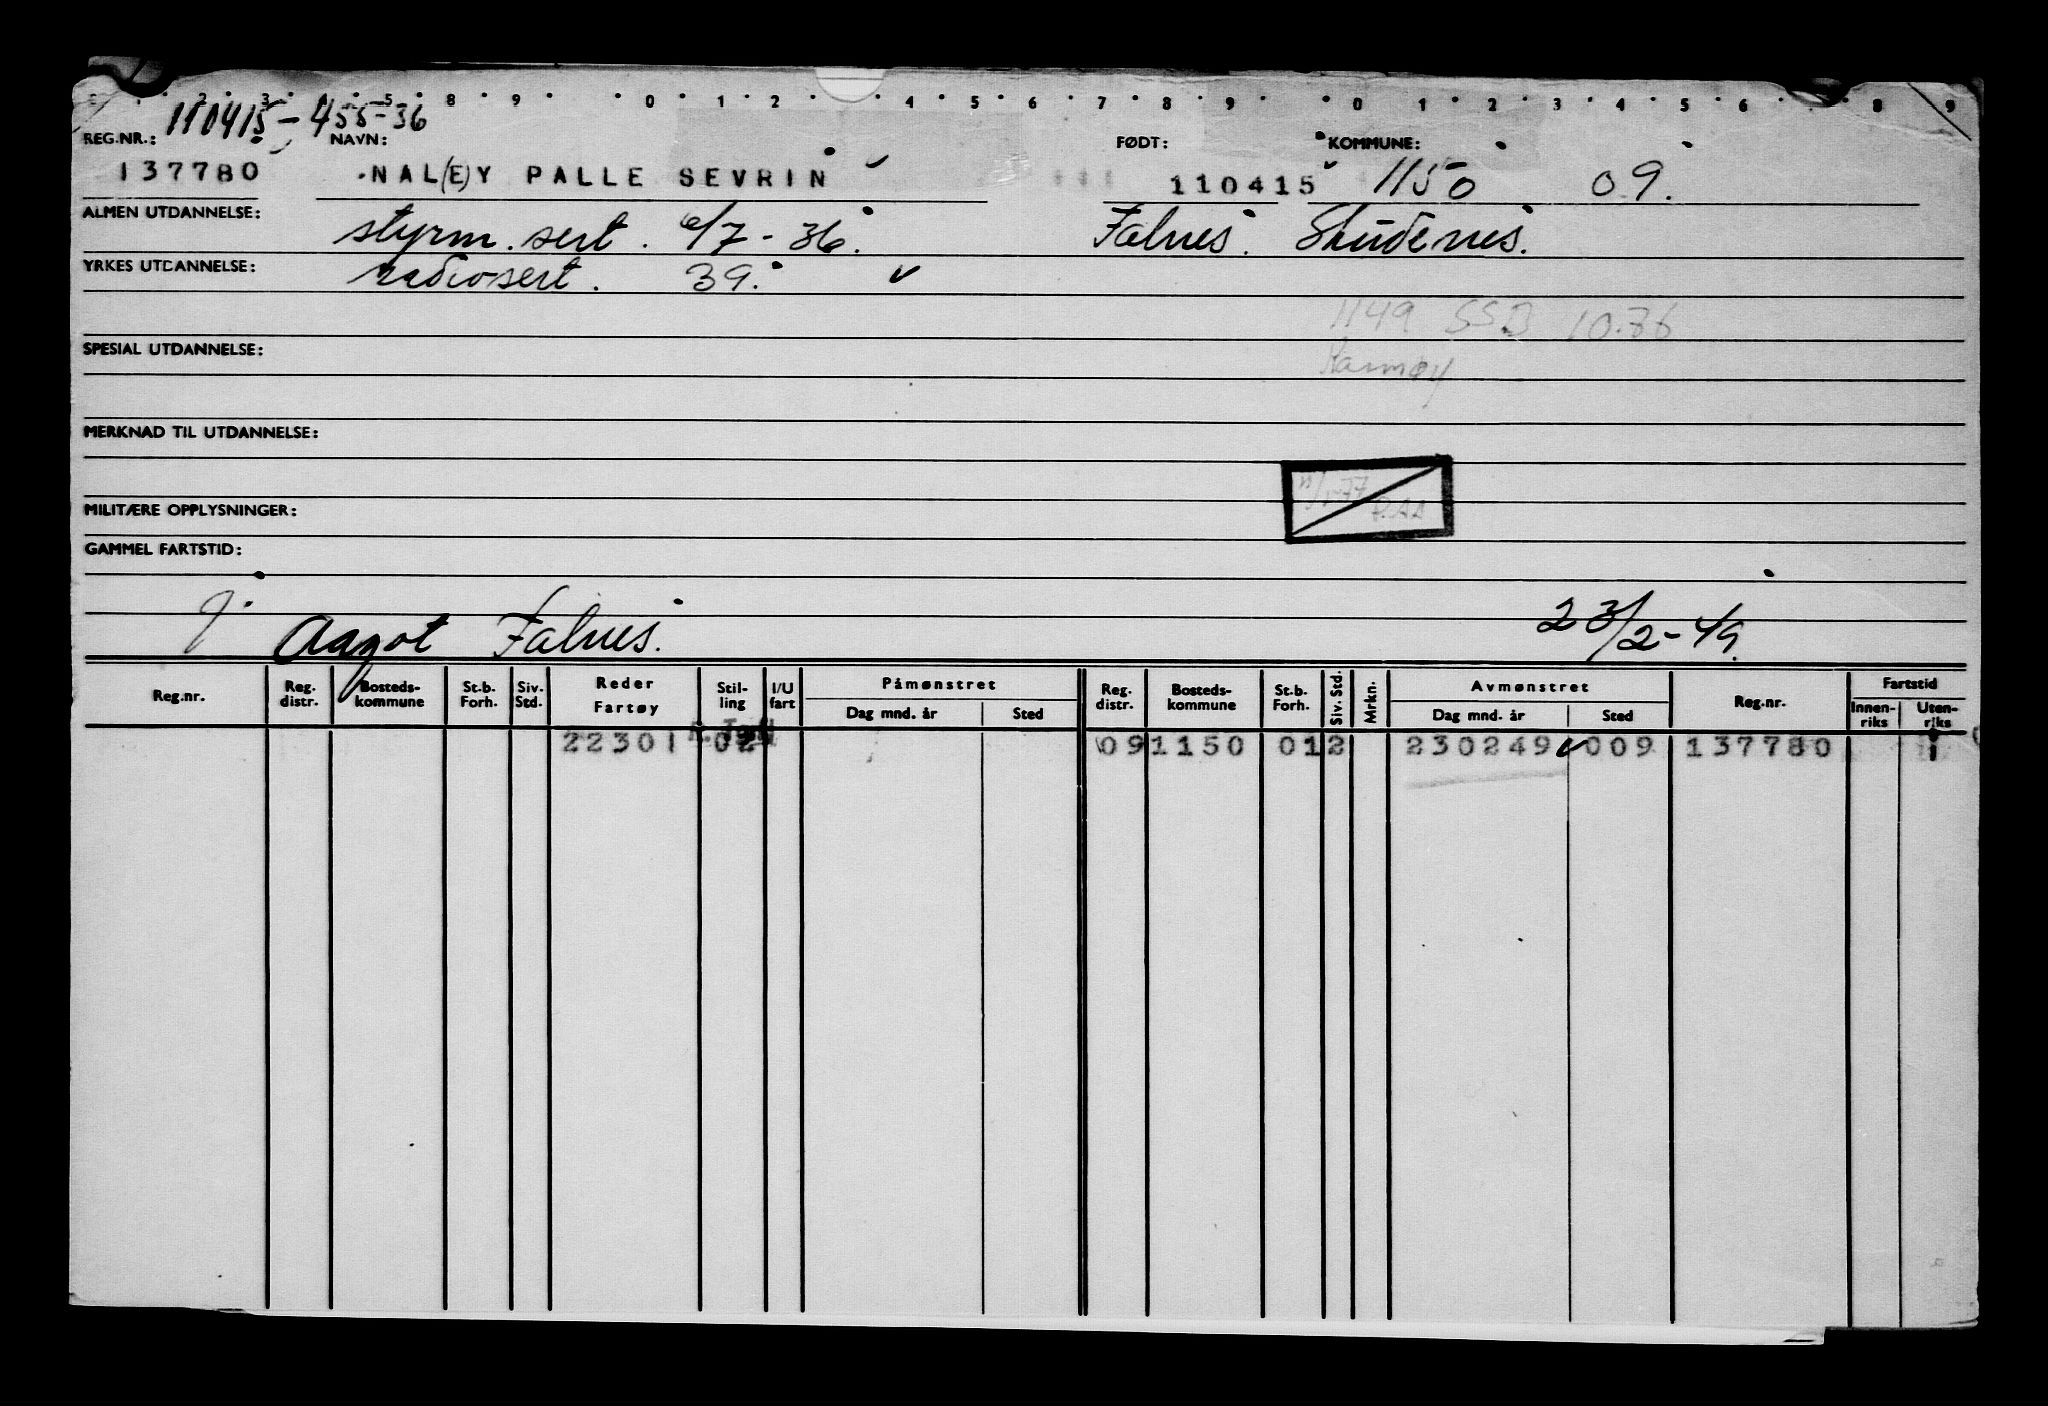 2 3 5 8 9 0 1 2 4 5 6 7 8 9 0 1 2 3 4 5 6 8 9
110415-455-36
REG.NR.: NAVN: FØDT: KOMMUNE:
137780 NAL(E)Y PALLE SEVRIN 110415 1150 09.
ALMEN UTDANNELSE: styrm. sert. /7-36. Falnes. Skudenes.
YRKES UTDANNELSE: radiosert. 39.
1149 SSB 10.76
SPESIAL UTDANNELSE: Karmøy
MERKNAD TIL UTDANNELSE:
MILITÆRE OPPLYSNINGER:
GAMMEL FARTSTID:
Aagot Falnes. 23/2-49.
Reg.nr. Reg. distr. Bosteds- kommune St.b. Forh. Siv. Std. Reder Fartøy Stil- ling I/U fart Påmønstret Dag mnd. år Sted Reg. distr. Bosteds- kommune St.b. Forh. Siv. Std. Mrkn. Avmønstret Dag mnd. år Sted Reg.nr. Fartstid Innen- riks Uten- riks
22301 02 09 1150 01 2 230249 009 137780